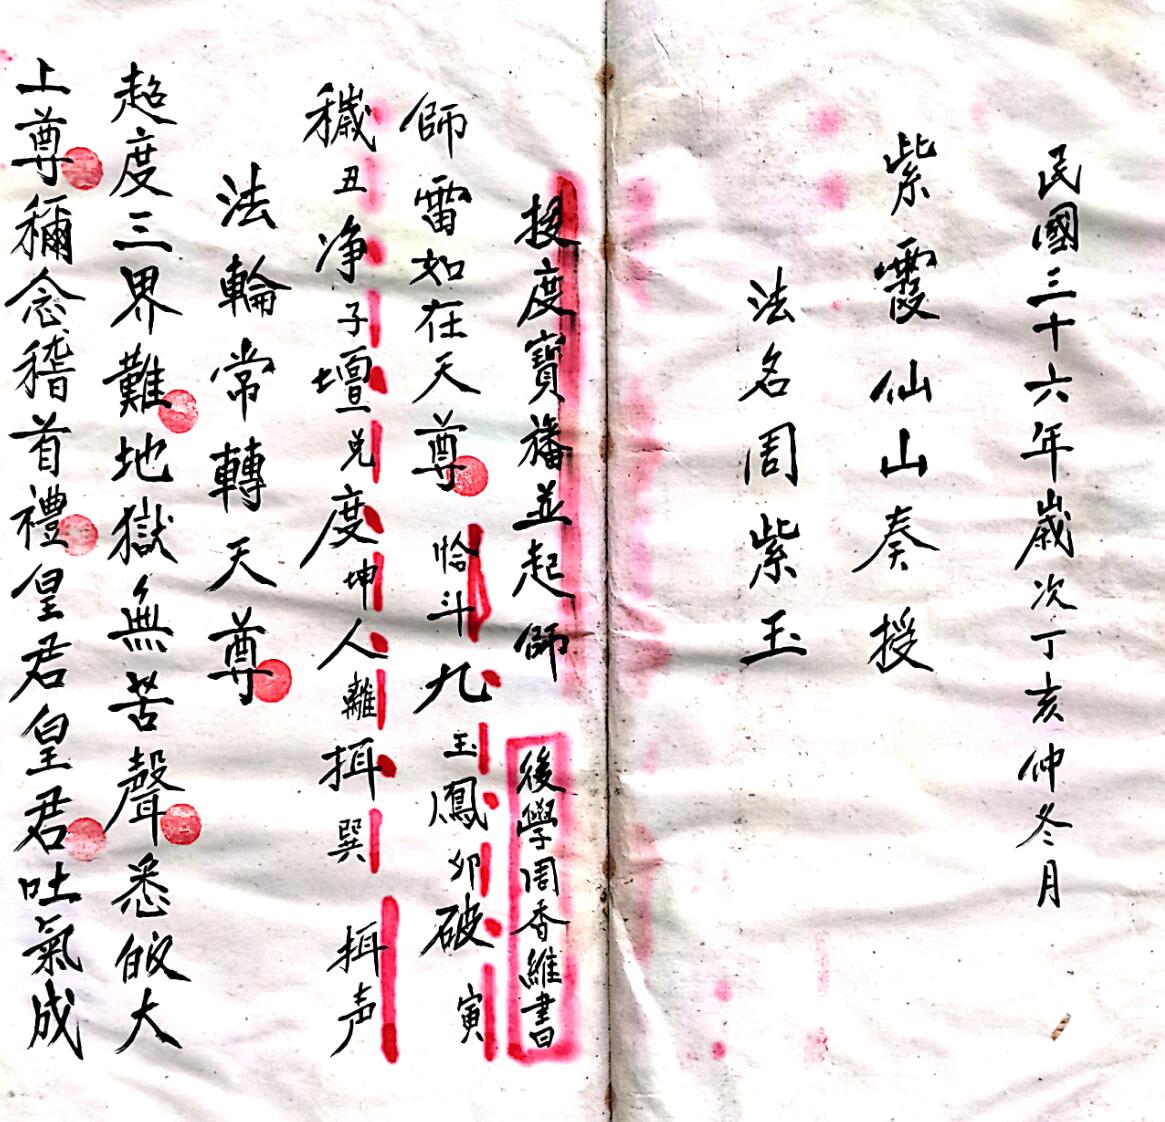 民國三十六年歲次丁亥仲冬月
紫霞仙山奏授
法名周紫玉
授度寶旛並起師
後學周香維書
師雷如在天尊 恰斗九玉鳳卯破寅
穢丑净子壇兌度坤人離挕巽 挕声
法輪常轉天尊
超度三界難地獄無苦聲悉皈大
上尊稱念稽首禮皇君皇君吐氣成